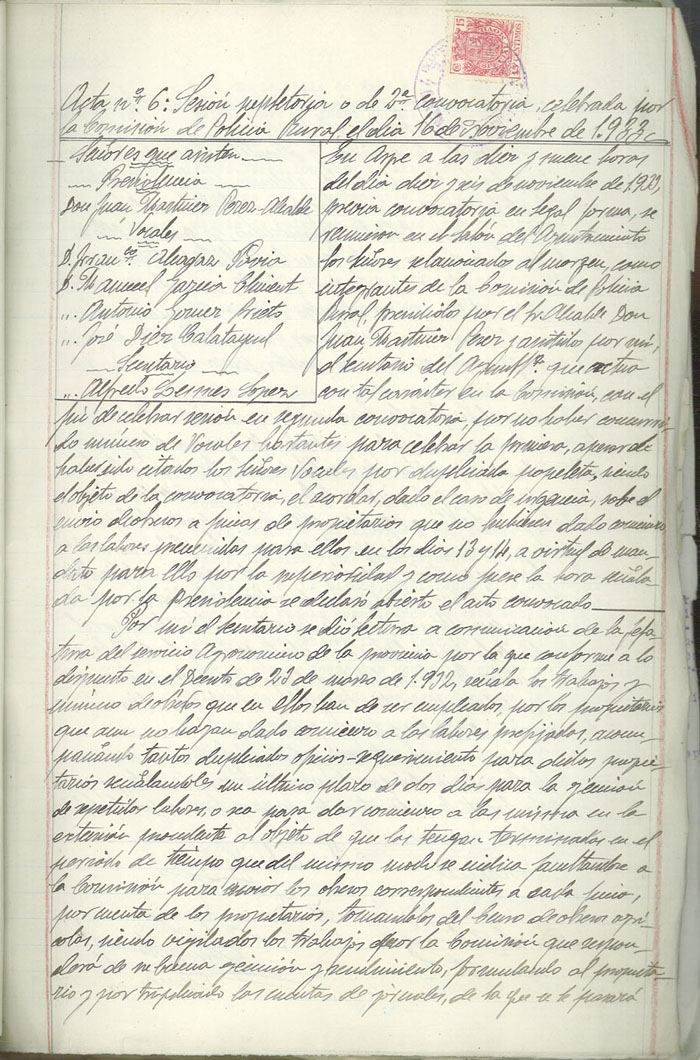 15
Acta nº 6: Sesión supletoria o de 2ª convocatoria, celebrada por
la Comisión de Policia Rural, el dia 16 de Noviembre de 1.933
Señores que asisten
Presidencia
Don Juan Martinez Perez-Alcalde
Vocales
D. Franco. Alcaraz
D. Manuel Garcia Climent
" Antonio Gomez Prieto
" José Diez Calatayud
Secretario
" Alfredo Lopez
En Aspe a las diez y nueve horas
del dia diez y seis de noviembre de 1.933,
previa convocatoria en legal forma, se
reunieron en el Salón del Ayuntamiento
los señores relacionados al margen, como
integrantes de la Comisión de Policia
rural, presididos por el Sr. Alcalde Don
Juan Martinez Perez y asistidos por mi,
el secretario del Ayuntº que actua
con tal carácter en la Comisión, con el
fin de celebrar sesión en segunda convocatoria, por no haber concurri-
do número de Vocales bastantes para celebrar la primera, apesar de
haber sido citados los señores Vocales por duplicada papeleta, siendo
el objeto de la convocatoria, el acordar, dado el caso de urgencia, sobre el
envio de obreros a fincas de propietarios que no hubiesen dado comienzo
a las labores prevenidas para ellos en los dias 13 y 14, a virtud de man-
dato para ello por la superioridad y como fuese la hora señala-
da por la Presidencia se declaró abierto el acto convocado.
Por mi el secretario se dió lectura a comunicacion de la Jefa-
tura del servicio Agronomico de la provincia por la que conforme a lo
dispuesto en el Decreto de 23 de marzo de 1.932, señala los trabajos y
número de obreros que en ellos han de ser empleados, por los propietarios
que aun no hayan dado comienzo a las labores prefijadas, acom-
pañando tantos duplicados oficios-requerimiento para dichos propie-
tarios señalandoles un último plazo de dos dias para la ejecución
de repetidas labores, o sea para dar comienzo a las mismas en la
extensión procedente al objeto de que las tengan terminadas en el
periodo de tiempo que del mismo modo se indica facultandose a
la Comisión para enviar los obreros correspondientes a cada finca,
por cuenta de los propietarios, tomandolos del Censo de obreros agri-
colas, siendo vigilados los trabajos por la Comisión que respon-
derá de su buena ejecución y rendimiento, formulando al propieta-
rio y por triplicado las cuentas de jornales, de la que se le pasará